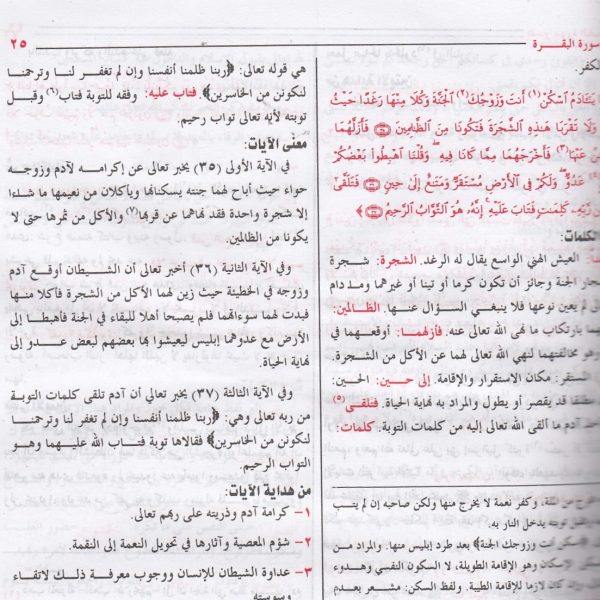 سورة البقرة
٢٥
الكفر.
يَا ءَادَمُ اسْكُنْ (١) أَنتَ وَزَوْجُكَ (٢) الْجَنَّةَ وَكُلَا مِنْهَا رَغَدًا حَيْثُ
وَلَا تَقْرَبَا هَٰذِهِ الشَّجَرَةَ فَتَكُونَا مِنَ الظَّالِمِينَ ﴿٣٥﴾ فَأَزَلَّهُمَا
عَنْهَا (٣) فَأَخْرَجَهُمَا مِمَّا كَانَا فِيهِ وَقُلْنَا اهْبِطُوا بَعْضُكُمْ
عَدُوٌّ وَلَكُمْ فِي الْأَرْضِ مُسْتَقَرٌّ وَمَتَاعٌ إِلَىٰ حِينٍ ﴿٣٦﴾ فَتَلَقَّىٰ
رَّبِّهِ كَلِمَاتٍ فَتَابَ عَلَيْهِ إِنَّهُ هُوَ التَّوَّابُ الرَّحِيمُ ﴿٣٧﴾
الكلمات:
العيش الهني الواسع يقال له الرغد. الشجرة: شجرة
الجنة وجائز أن تكون كرما أو تينا أو غيرهما وما دام
لم يعين نوعها فلا ينبغي السؤال عنها. الظالمين:
بارتكاب ما نهى الله تعالى عنه. فأزلهما: أوقعهما في
وهو مخالفتهما لنهي الله تعالى لهما عن الأكل من الشجرة.
المستقر: مكان الاستقرار والإقامة. إلى حين: الحين:
مطلقا قد يقصر أو يطول والمراد به نهاية الحياة. فتلقى (٥)
آدم ما ألقى الله تعالى إليه من كلمات التوبة. كلمات:
من الله، وكفر نعمة لا يخرج منها ولكن صاحبه إن لم يتب
توبته يدخل النار به.
﴿اسكن أنت وزوجك الجنة﴾ بعد طرد إبليس منها. والمراد من
وهو الإقامة الطويلة، لا السكون النفسي وهدوء
كان لازما للإقامة الطيبة. ولفظ السكن: مشعر بعدم
هي قوله تعالى: ﴿ربنا ظلمنا أنفسنا وإن لم تغفر لنا وترحمنا
لنكونن من الخاسرين﴾ فتاب عليه: وفقه للتوبة فتاب (٦) وقبل
توبته لأنه تعالى تواب رحيم.
معنى الآيات:
في الآية الأولى (٣٥) يخبر تعالى عن إكرامه لآدم وزوجه
حواء حيث أباح لهما جنته يسكنانها ويأكلان من نعيمها ما شاءا
إلا شجرة واحدة فقد نهاهما عن قربها (٧) والأكل من ثمرها حتى لا
يكونا من الظالمين.
وفي الآية الثانية (٣٦) أخبر تعالى أن الشيطان أوقع آدم
وزوجه في الخطيئة حيث زين لهما الأكل من الشجرة فأكلا منها
فبدت لهما سوءاتهما فلم يصبحا أهلا للبقاء في الجنة فأهبطا إلى
الأرض مع عدوهما إبليس ليعيشوا بها بعضهم لبعض عدو إلى
نهاية الحياة.
وفي الآية الثالثة (٣٧) يخبر تعالى أن آدم تلقى كلمات التوبة
من ربه تعالى وهي: ﴿ربنا ظلمنا أنفسنا وإن لم تغفر لنا وترحمنا
لنكونن من الخاسرين﴾ فقالاها توبة فتاب الله عليهما وهو
التواب الرحيم.
من هداية الآيات:
١- كرامة آدم وذريته على ربهم تعالى.
٢- شؤم المعصية وآثارها في تحويل النعمة إلى النقمة.
٣- عداوة الشيطان للإنسان ووجوب معرفة ذلك لاتقاء
وسوسته